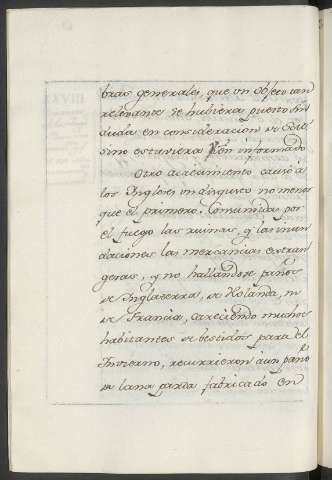 bras generales, que un objeto tan
relevante se hubiera puesto sin
duda en consideracion de
sino estuviera informado
Otro acaecimiento causó a
los Ingleses un disgusto no menos
que el primero. Comunidas por
el fuego las ruinas, y las inun
daciones las mercancias estran
geras, y no hallandose paños
de Inglaterra, de Holanda, ni
de Francia, careciendo muchos
habitantes de bestidos para el
Invierno, recurrieron á un paño
de lana parda fabricado en